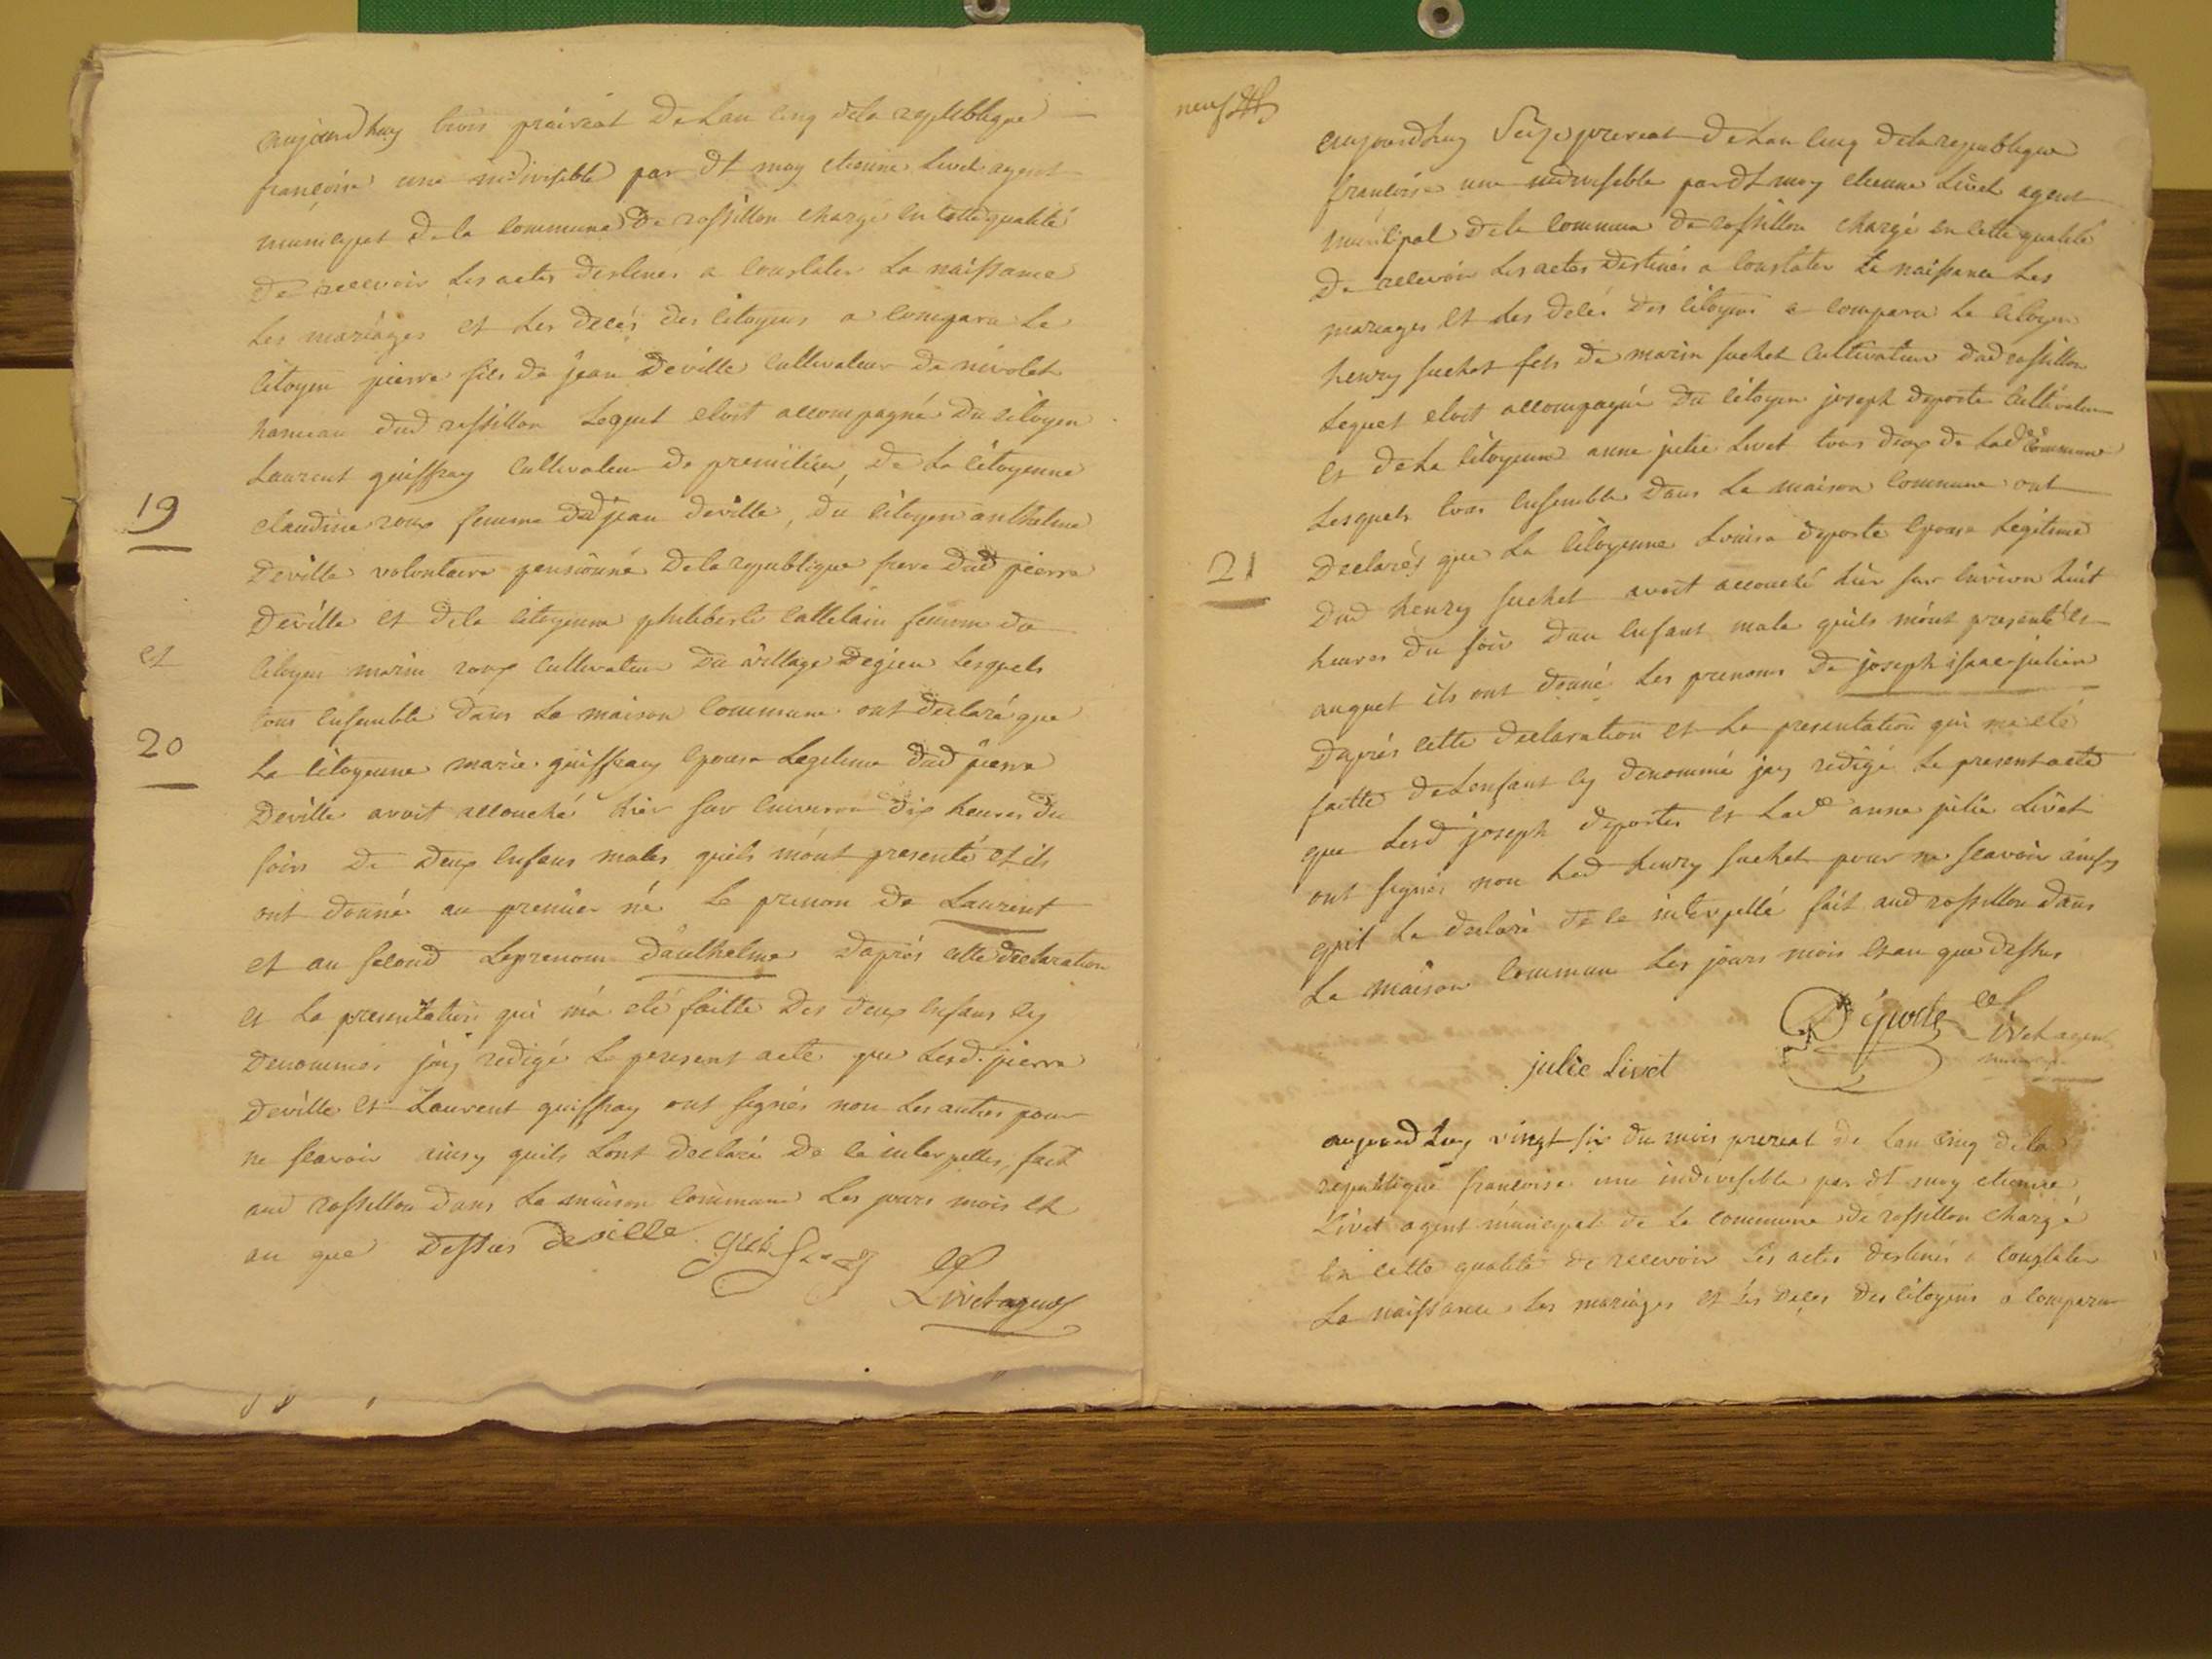 aujourdhuy trois preireal de Lan cinq dela republique
françoise une indivisible par dt moy etienne Livet agent
municipal de la commune de rossillon chargé en cette qualité
de recevoir les actes destines a constater la naissance
les mariages et les décés des citoyens a comparu le
citoyen pierre fils de jean deville cultivateur de nivolet
hameau dud rossillon Lequel etoit accompagné du citoyen
Laurent guiffray cultivateur de premilieu, de la citoyenne
19
claudine roux femme dud jean deville, du citoyen anthelme
deville volontaire pensionné de la republique frere dud pierre
deville et de la citoyenne philiberte cattelain femme du
et
citoyen marin roux cultivateur du village degieu lesquels
tous ensemble dans la maison commune ont declaré que
20
la citoyenne marie guiffray epouse legitime dud pierre
deville avoit accouché hier sur environ dix heures du
soir de deux enfans males quils mont presenté et ils
ont donné au premier né le prenom de Laurent
et au second le prenom danthelme daprés cette declaration
et la presentation qui má eté faitte des deux enfans cy
denommés jay redigé le present acte que lesd. pierre
deville et Laurent guiffray ont signés non les autres pour
ne scavoir ainsy quils lont declaré de ce interpelles, fait
aud rossillon dans la maison commune les jours mois et
an que dessus deville guiffray
Livet agent
neuf
aujourdhuy Seize prereal de Lan cinq dela republique
françoise une indivisible par dt moy etienne Livet agent
municipal dela commune de rossillon chargé en cette qualité
de recevoir les actes destinés a constater la naissance les
mariages et les décés des citoyens a comparu le citoyen
henry suchet fils de marin suchet cultivateur dud rossillon
lequel etoit accompagné du citoyen joseph deporte cultivateur
et de la citoyenne anne julie Livet tous deux de lad commune
lesquels tous ensemble dans la maison commune ont
21
declarés que la citoyenne Louise deporte epouse légitime
dud henry suchet avoit accouché hier sur environ huit
heures du soir dun enfant male quils mónt presenté et
auquel ils ont donné les prenoms de joseph isaac julien
daprés cette declaration et la presentation qui ma eté
faitte de lenfant cy denommé jay redigé le present acte
que lesd joseph deportes et lad anne julie Livet
ont signés non led henry suchet pour ne scavoir ainsy
quil la declaré de ce interpellé fait aud rossillon dans
la maison commune les jours mois et an que dessus
Déporte
Livet agent
julie Livet
aujourdhuy vingt six du mois prereal de lan cinq de la
republique françoise une indivisible par dt moy etienne
Livet agent municipal de la commune de rossillon chargé
en cette qualité de recevoir les actes destinés a constater
la naissance les mariages et les decés des citoyens a comparu